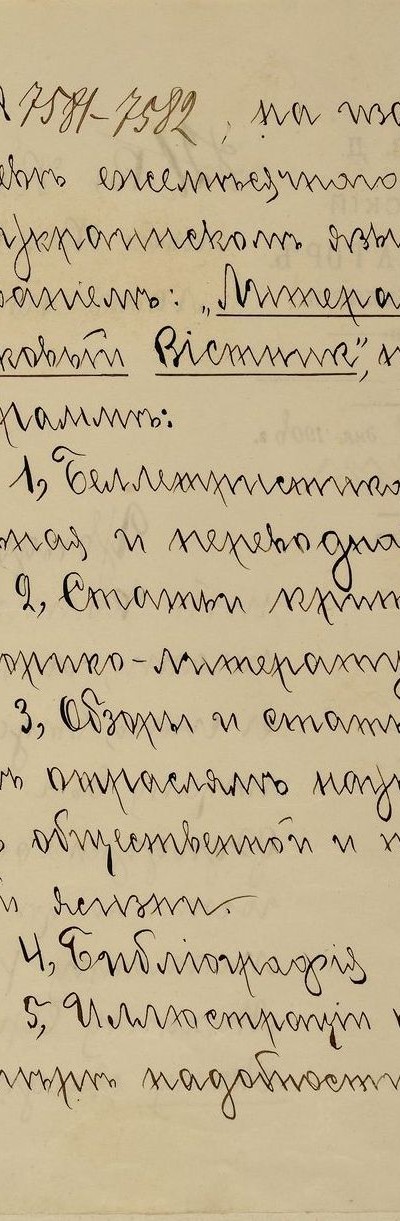 7581-7582, на изд
евѣ ежемѣсячнаго
украинскомъ язы
ваніемъ: „Литера
ковый Вістник", п
граммѣ:
1, Беллетристика
ьная и переводна
2, Статьи крит
орико-литерату
3, Обзоры и стать
ъ отраслямъ нау
общественной и п
й жизни.
4, Библіографія
5, Иллюстраціи
мѣрѣ надобности